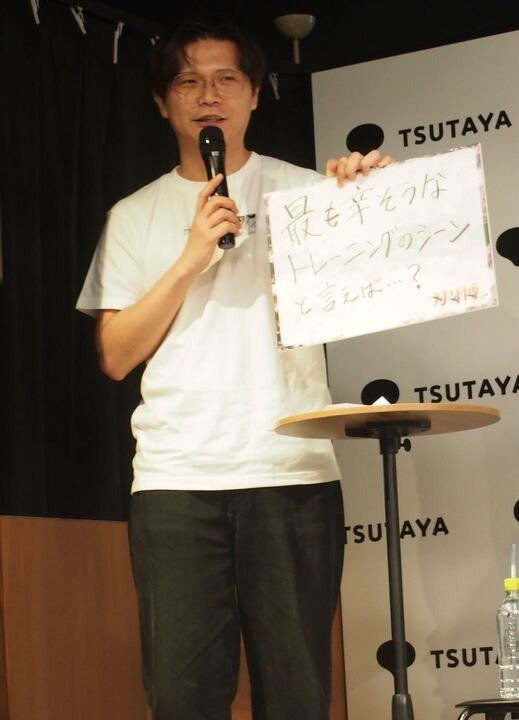 TSUTAYA
最も辛そうな
トレーニングのシーン
と言えば…?
TSUTAYA
TSUTAYA
TSUTA